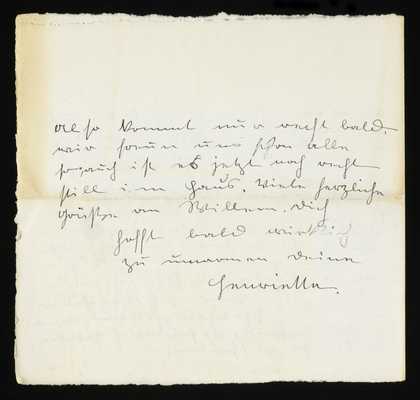 Also kommt nur recht bald,
wir freun uns schon alle
so, auch ist es jetzt noch recht
still im Haus. Viele herzliche
Grüße an Willem. Dich
hofft bald wirklich
zu umarmen Deine
Henrietta.